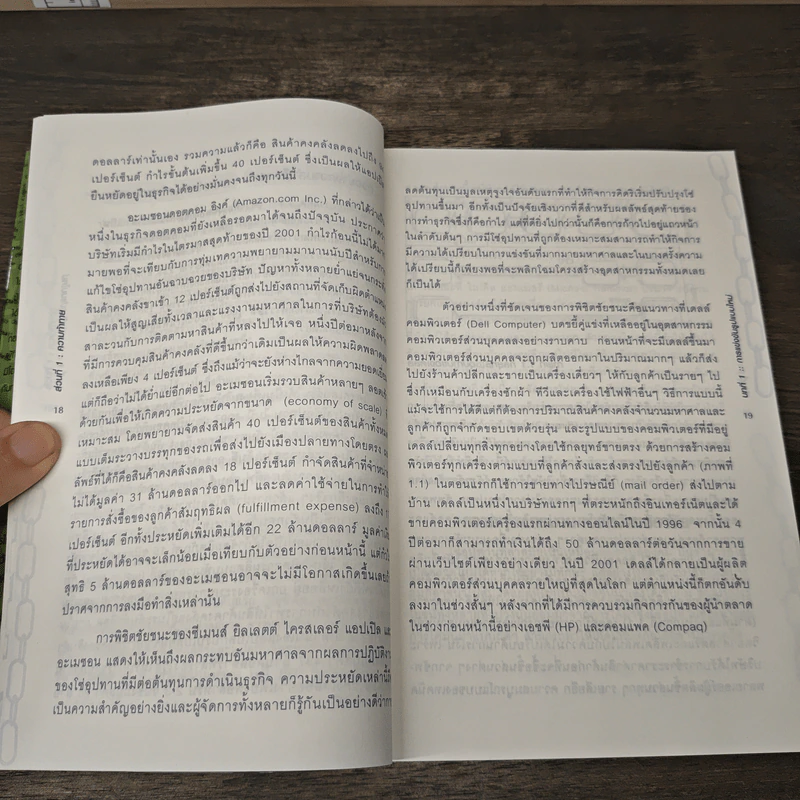 ดอลลาร์เท่านั้นเอง รวมความแล้วก็คือ สินค้าคงคลังลดลงไปถึง
เปอร์เซ็นต์ กำไรขั้นต้นเพิ่มขึ้น 40 เปอร์เซ็นต์ ซึ่งเป็นผลให้แอปเปิล
ยืนหยัดอยู่ในธุรกิจได้อย่างมั่นคงจนถึงทุกวันนี้
อะเมซอนดอตคอม อิงค์ (Amazon.com Inc.) ที่กล่าวได้ว่าเป็น
หนึ่งในธุรกิจดอตคอมที่ยังเหลือรอดมาได้จนถึงปัจจุบัน ประกาศว่า
บริษัทเริ่มมีกำไรในไตรมาสสุดท้ายของปี 2001 กำไรก้อนนี้ไม่ได้
มายพอที่จะเทียบกับการทุ่มเทความพยายามมานานนับปีสำหรับการ
แก้ไขโซ่อุปทานอันฉาบฉวยของบริษัท ปัญหาทั้งหลายย่ำแย่จน
สินค้าคงคลังขาเข้า 12 เปอร์เซ็นต์ถูกส่งไปยังสถานที่จัดเก็บผิดตำแหน่ง
เป็นผลให้สูญเสียทั้งเวลาและแรงงานมหาศาลในการที่บริษัทต้อง
สาละวนกับการติดตามหาสินค้าที่หลงไปให้เจอ หนึ่งปีต่อมาหลังจาก
ที่มีการควบคุมสินค้าคงคลังที่ดีขึ้นกว่าเดิมเป็นผลให้ความผิดพลาด
ลงเหลือเพียง 4 เปอร์เซ็นต์ ซึ่งถึงแม้ว่าจะยังห่างไกลจากความยอดเยี่ยม
แต่ก็ถือว่าไม่ได้ย่ำแย่อีกต่อไป อะเมซอนเริ่มรวบสินค้าหลายๆ
ด้วยกันเพื่อให้เกิดความประหยัดจากขนาด (economy of scale)
เหมาะสม โดยพยายามจัดส่งสินค้า 40 เปอร์เซ็นต์ของสินค้าทั้งหมด
แบบเต็มระวางบรรทุกของรถเพื่อส่งไปยังเมืองปลายทางโดยตรง
ลัพธ์ที่ได้ก็คือสินค้าคงคลังลดลง 18 เปอร์เซ็นต์ กำจัดสินค้าที่จำหน่าย
ไม่ได้มูลค่า 31 ล้านดอลลาร์ออกไป และลดค่าใช้จ่ายในการทำ
รายการสั่งซื้อของลูกค้าสัมฤทธิผล (fulfillment expense) ลงถึง
เปอร์เซ็นต์ อีกทั้งประหยัดเพิ่มเติมได้อีก 22 ล้านดอลลาร์ มูลค่า
ที่ประหยัดได้อาจจะเล็กน้อยเมื่อเทียบกับตัวอย่างก่อนหน้านี้ แต่กำไร
สุทธิ 5 ล้านดอลลาร์ของอะเมซอนอาจจะไม่มีโอกาสเกิดขึ้นเลย
ปราศจากการลงมือทำสิ่งเหล่านั้น
การพิชิตชัยชนะของซีเมนส์ ยิลเลตต์ ไครสเลอร์ แอปเปิล และ
อะเมซอน แสดงให้เห็นถึงผลกระทบอันมหาศาลจากผลการปฏิบัติ
ของโซ่อุปทานที่มีต่อต้นทุนการดำเนินธุรกิจ ความประหยัดเหล่านี้
เป็นความสำคัญอย่างยิ่งและผู้จัดการทั้งหลายก็รู้กันเป็นอย่างดีว่าการ
ส่วนที่ 1 : ความท้าทาย
18
ลดต้นทุนเป็นมูลเหตุจูงใจอันดับแรกที่ทำให้กิจการคิดริเริ่มปรับปรุงโซ่
อุปทานขึ้นมา อีกทั้งเป็นปัจจัยเชิงบวกที่ดีสำหรับผลลัพธ์สุดท้ายของ
การทำธุรกิจซึ่งก็คือกำไร แต่ที่ดียิ่งไปกว่านั้นก็คือการก้าวไปอยู่แถวหน้า
ในลำดับต้นๆ การมีโซ่อุปทานที่ถูกต้องเหมาะสมสามารถทำให้กิจการ
มีความได้เปรียบในการแข่งขันที่มากมายมหาศาลและในบางครั้งความ
ได้เปรียบนี้ก็เพียงพอที่จะพลิกโฉมโครงสร้างอุตสาหกรรมทั้งหมดเลย
ก็เป็นได้
ตัวอย่างหนึ่งที่ชัดเจนของการพิชิตชัยชนะคือแนวทางที่เดลล์
คอมพิวเตอร์ (Dell Computer) บดขยี้คู่แข่งที่เหลืออยู่ในอุตสาหกรรม
คอมพิวเตอร์ส่วนบุคคลลงอย่างราบคาบ ก่อนหน้าที่จะมีเดลล์ขึ้นมา
คอมพิวเตอร์ส่วนบุคคลจะถูกผลิตออกมาในปริมาณมากๆ แล้วก็ส่ง
ไปยังร้านค้าปลีกและขายเป็นเครื่องเดี่ยวๆ ให้กับลูกค้าเป็นรายๆ ไป
ซึ่งก็เหมือนกับเครื่องซักผ้า ทีวีและเครื่องใช้ไฟฟ้าอื่นๆ วิธีการแบบนี้
แม้จะใช้การได้ดีแต่ก็ต้องการปริมาณสินค้าคงคลังจำนวนมหาศาลและ
ลูกค้าก็ถูกจำกัดขอบเขตด้วยรุ่น และรูปแบบของคอมพิวเตอร์ที่มีอยู่
เดลล์เปลี่ยนทุกสิ่งทุกอย่างโดยใช้กลยุทธ์ขายตรง ด้วยการสร้างคอม
พิวเตอร์ทุกเครื่องตามแบบที่ลูกค้าสั่งและส่งตรงไปยังลูกค้า (ภาพที่
1.1) ในตอนแรกก็ใช้การขายทางไปรษณีย์ (mail order) ส่งไปตาม
บ้าน เดลล์เป็นหนึ่งในบริษัทแรกๆ ที่ตระหนักถึงอินเทอร์เน็ตและได้
ขายคอมพิวเตอร์เครื่องแรกผ่านทางออนไลน์ในปี 1996 จากนั้น 4
ปีต่อมาก็สามารถทำเงินได้ถึง 50 ล้านดอลลาร์ต่อวันจากการขาย
ผ่านเว็บไซต์เพียงอย่างเดียว ในปี 2001 เดลล์ได้กลายเป็นผู้ผลิต
คอมพิวเตอร์ส่วนบุคคลรายใหญ่ที่สุดในโลก แต่ตำแหน่งนี้ก็ตกอันดับ
ลงมาในช่วงสั้นๆ หลังจากที่ได้มีการควบรวมกิจการกันของผู้นำตลาด
ในช่วงก่อนหน้านี้อย่างเอชพี (HP) และคอมแพค (Compaq)
บทที่ 1 :
19